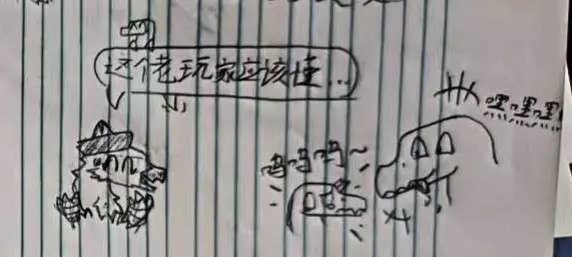 这个老玩家应该懂...
呜呜呜~
嘿嘿嘿